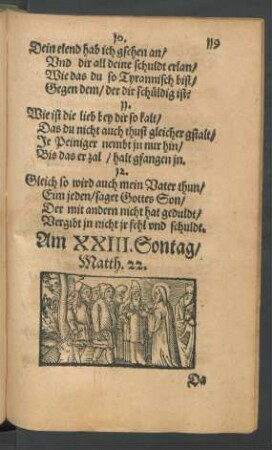 30.
119
Dein elend hab ich gsehen an/
Vnd dir all deine schuldt erlan/
Wie das du so Tyrannisch bist/
Gegen dem/ der dir schüldig ist?
31.
Wie ist die lieb bey dir so kalt/
Das du nicht auch thust gleicher gstalt/
Jr Peiniger nembt jn nur hin/
Bis das er zal / halt gfangen jn.
32.
Gleich so wird auch mein Vater thun/
Eim jeden/ saget Gottes Son/
Der mit andern nicht hat geduldt/
Vergibt jn nicht jr fehl vnd schuldt.
Am XXIII. Sontag/
Matth. 22.
Da